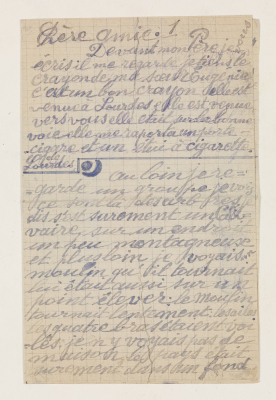 Chère amie. 1
Devant mon Père je
écris il me regarde je tiens le
crayon de ma sœur Eugénie
c'est un bon crayon elle est
venue a Lourdes elle est venue
vers vous elle était sur la bonne
voie elle me raporta un porte-
cigare et un étui à cigarette.
de
Lourdes
au loin je re-
garde un groupe je vois
ce sont
dis. c'est surement un
vaire, sur un endroit
un peu montagneuse
et plus loin je voyais un
moulin qu'il tournait
lui était aussi sur un
point élever. le moulin
tournait lentement.
les quatre bras étaient voi
lés. je n'y voyais pas de
maison le pays était
surement dans un fond